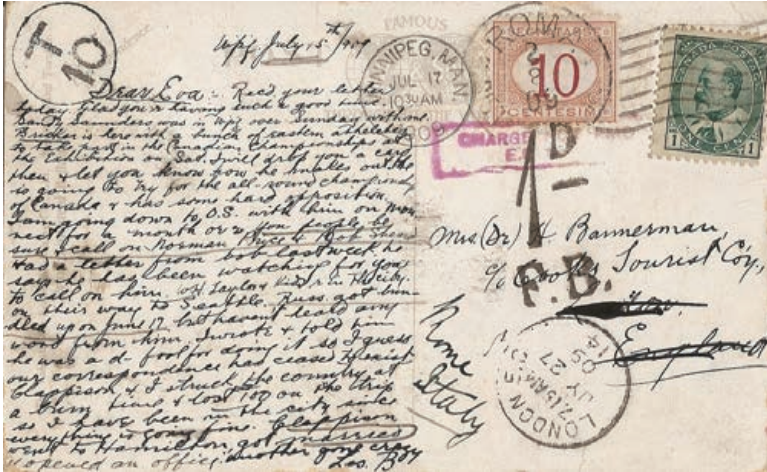 T
10
Wpg. July 15th/09
Dear Eva:- Rec'd your letter
today. Glad you're having such a good time.
Sandy Saunders was in Wpg over Sunday with me.
Bricker is here with a bunch of eastern athletes
to take part in the Canadian Championships at
the Exhibition on Sat. I will drop you a card
then & let you know how he makes out. He
is going to try for the all-round championship
of Canada & has some hard opposition.
I am going down to O.S. with him on Mon
next for a month or 2. You people be
sure & call on Norman Bryce & Bob Shen
Had a letter from Bob last week he
says he has been watching for you
to call on him. Taylor & kids in the city
on their way to Seattle. Russ. got bun-
dled up on June 17 but haven't heard any
word from him. I wrote & told him
he was a d- fool for doing it so I guess
our correspondence has ceased to exist
Clappison & I struck the country at
a bum time & lost 100 on the trip
so I have been in the city since
everything is going fine. Clappison
went to Hamilton, got married
& opened an office. Another guy crazy
FAMOUS
WINNIPEG, MAN.
JUL 17
10 30 AM
1909
ROM
2
8
09
SEGNATASSE
10
CENTESIMI
CANADA POSTAGE
1 CENT 1
CHARGE
1D
F.B.
Mrs. (Dr) H Bannerman,
c/o Cook's Tourist Co'y.,
England
Rome
Italy
LONDON
7.15 AM
JY 27
09
14